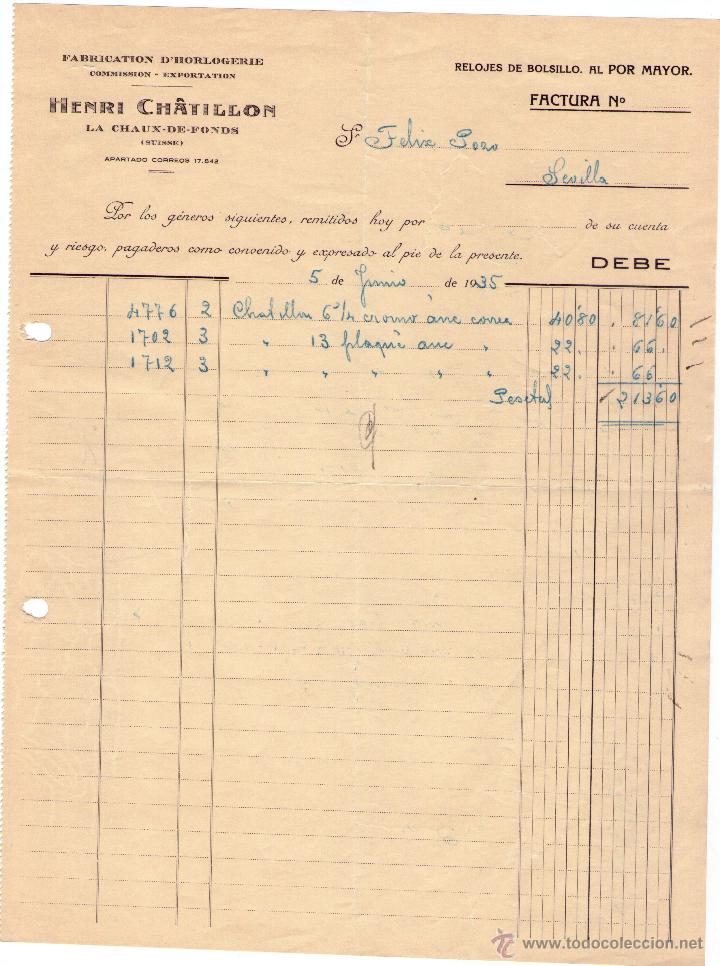 FABRICATION D'HORLOGERIE
COMMISSION - EXPORTATION
HENRI CHÂTILLON
LA CHAUX-DE-FONDS
(SUISSE)
APARTADO CORREOS 17.642
RELOJES DE BOLSILLO. AL POR MAYOR.
FACTURA Nº
Sr Felix Pozo
Sevilla
Por los géneros siguientes, remitidos hoy por de su cuenta
y riesgo, pagaderos como convenido y expresado al pie de la presente.
DEBE
5 de Junio de 1935
4776 2 Chatillon 6¾ cromo anc correa 40'80 . 81'60
1702 3 " 13 plaqué anc " 22. . 66.
1712 3 " " " " " 22. . 66
Pesetas 213'60
www.todocoleccion.net